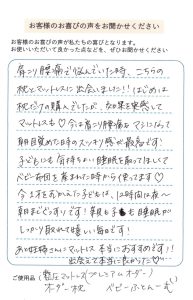 お客様のお喜びの声をお聞かせください
お客様のお喜びの声が私たちの喜びとなります。
お使いいただいて良かった点などを、ぜひお聞かせください
肩こり腰痛で悩んでいた時、こちらの
枕とマットレスに出会いました!!はじめは
枕だけの購入でしたが、効果を実感して
マットレスも♡今は肩こり腰痛も マシになって
朝目覚めた時のスッキリ感が最高です!
子どもにも 気持ちよい睡眠を取ってほしくて
ベビー布団を産まれた時から使ってます♡
今2才をむかえた子どもは、12時間は夜〜
朝までぐっすりです!親も子も睡眠が
しっかり取れて嬉しい毎日です!
マットレス 本当におすすめです!!
出会えて本当に良かった♡
ご使用品（整圧マットレス(プレミアムオーダー)
オーダー枕 ベビーふとん一式）